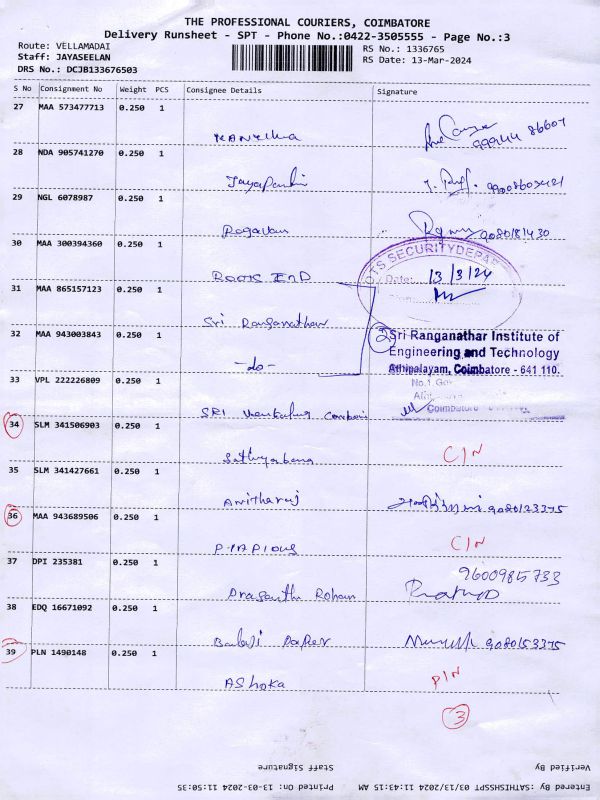 THE PROFESSIONAL COURIERS, COIMBATORE
Delivery Runsheet - SPT - Phone No.:0422-3505555 - Page No.:3
Route: VELLAMADAI
RS No.: 1336765
Staff: JAYASEELAN
RS Date: 13-Mar-2024
DRS No.: DCJB133676503
S No Consignment No Weight PCS Consignee Details Signature
27 MAA 573477713 0.250 1
99944 86607
28 NDA 905741270 0.250 1
29 NGL 6078987 0.250 1
Ragavan 9080181430
30 MAA 300394360 0.250 1
SECURITY DEPAR
Date: 13/3/24
ROOTS IND
31 MAA 865157123 0.250 1
Sri Ranganathar
32 MAA 943003843 0.250 1
② Sri Ranganathar Institute of
Engineering and Technology
Athipalayam, Coimbatore - 641 110.
-do-
33 VPL 222226809 0.250 1
No.1
Coimbatore
SRI
34 SLM 341506903 0.250 1
Sathyabama C/N
35 SLM 341427661 0.250 1
Anitharaj
36 MAA 943689506 0.250 1
C/N
37 DPI 235381 0.250 1
9600985733
Prasanth
38 EDQ 16671092 0.250 1
Balaji Paper 9080153375
39 PLN 1490148 0.250 1
Ashoka P/N
3
Staff Signature
Verified By
Printed On: 13-03-2024 11:50:35
Entered By :SATHISHSSPT 03/13/2024 11:43:15 AM